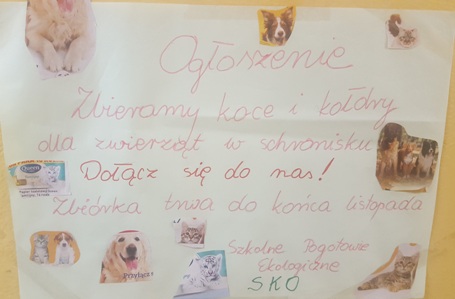 Ogłoszenie
Zbieramy koce i kołdry
dla zwierząt w schronisku
Dołącz się do nas!
Zbiórka trwa do końca listopada
Szkolne Pogotowie
Ekologiczne
SKO